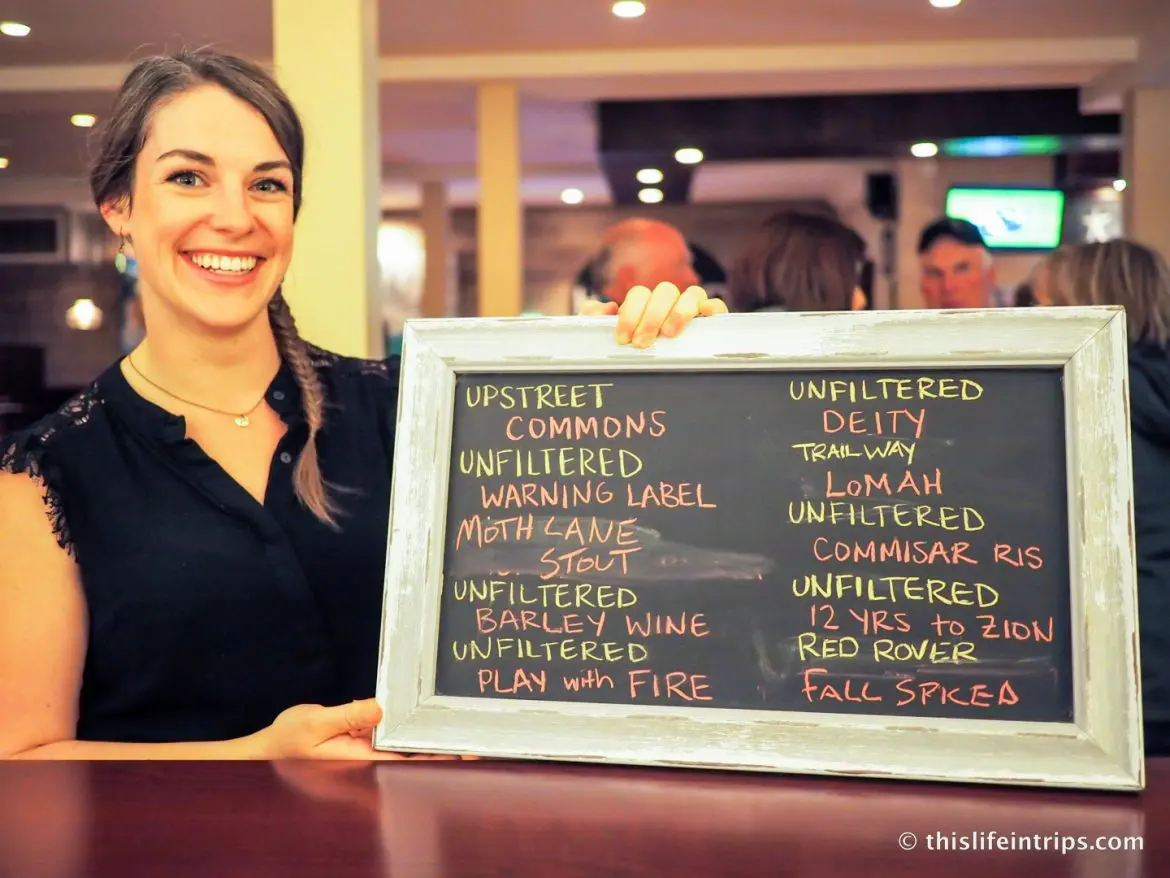 UPSTREET
COMMONS
UNFILTERED
WARNING LABEL
MOTH LANE
STOUT
UNFILTERED
BARLEY WINE
UNFILTERED
PLAY with FIRE
UNFILTERED
DEITY
TRAILWAY
LOMAH
UNFILTERED
COMMISAR RIS
UNFILTERED
12 YRS to ZION
RED ROVER
FALL SPICED
© thislifeintrips.com